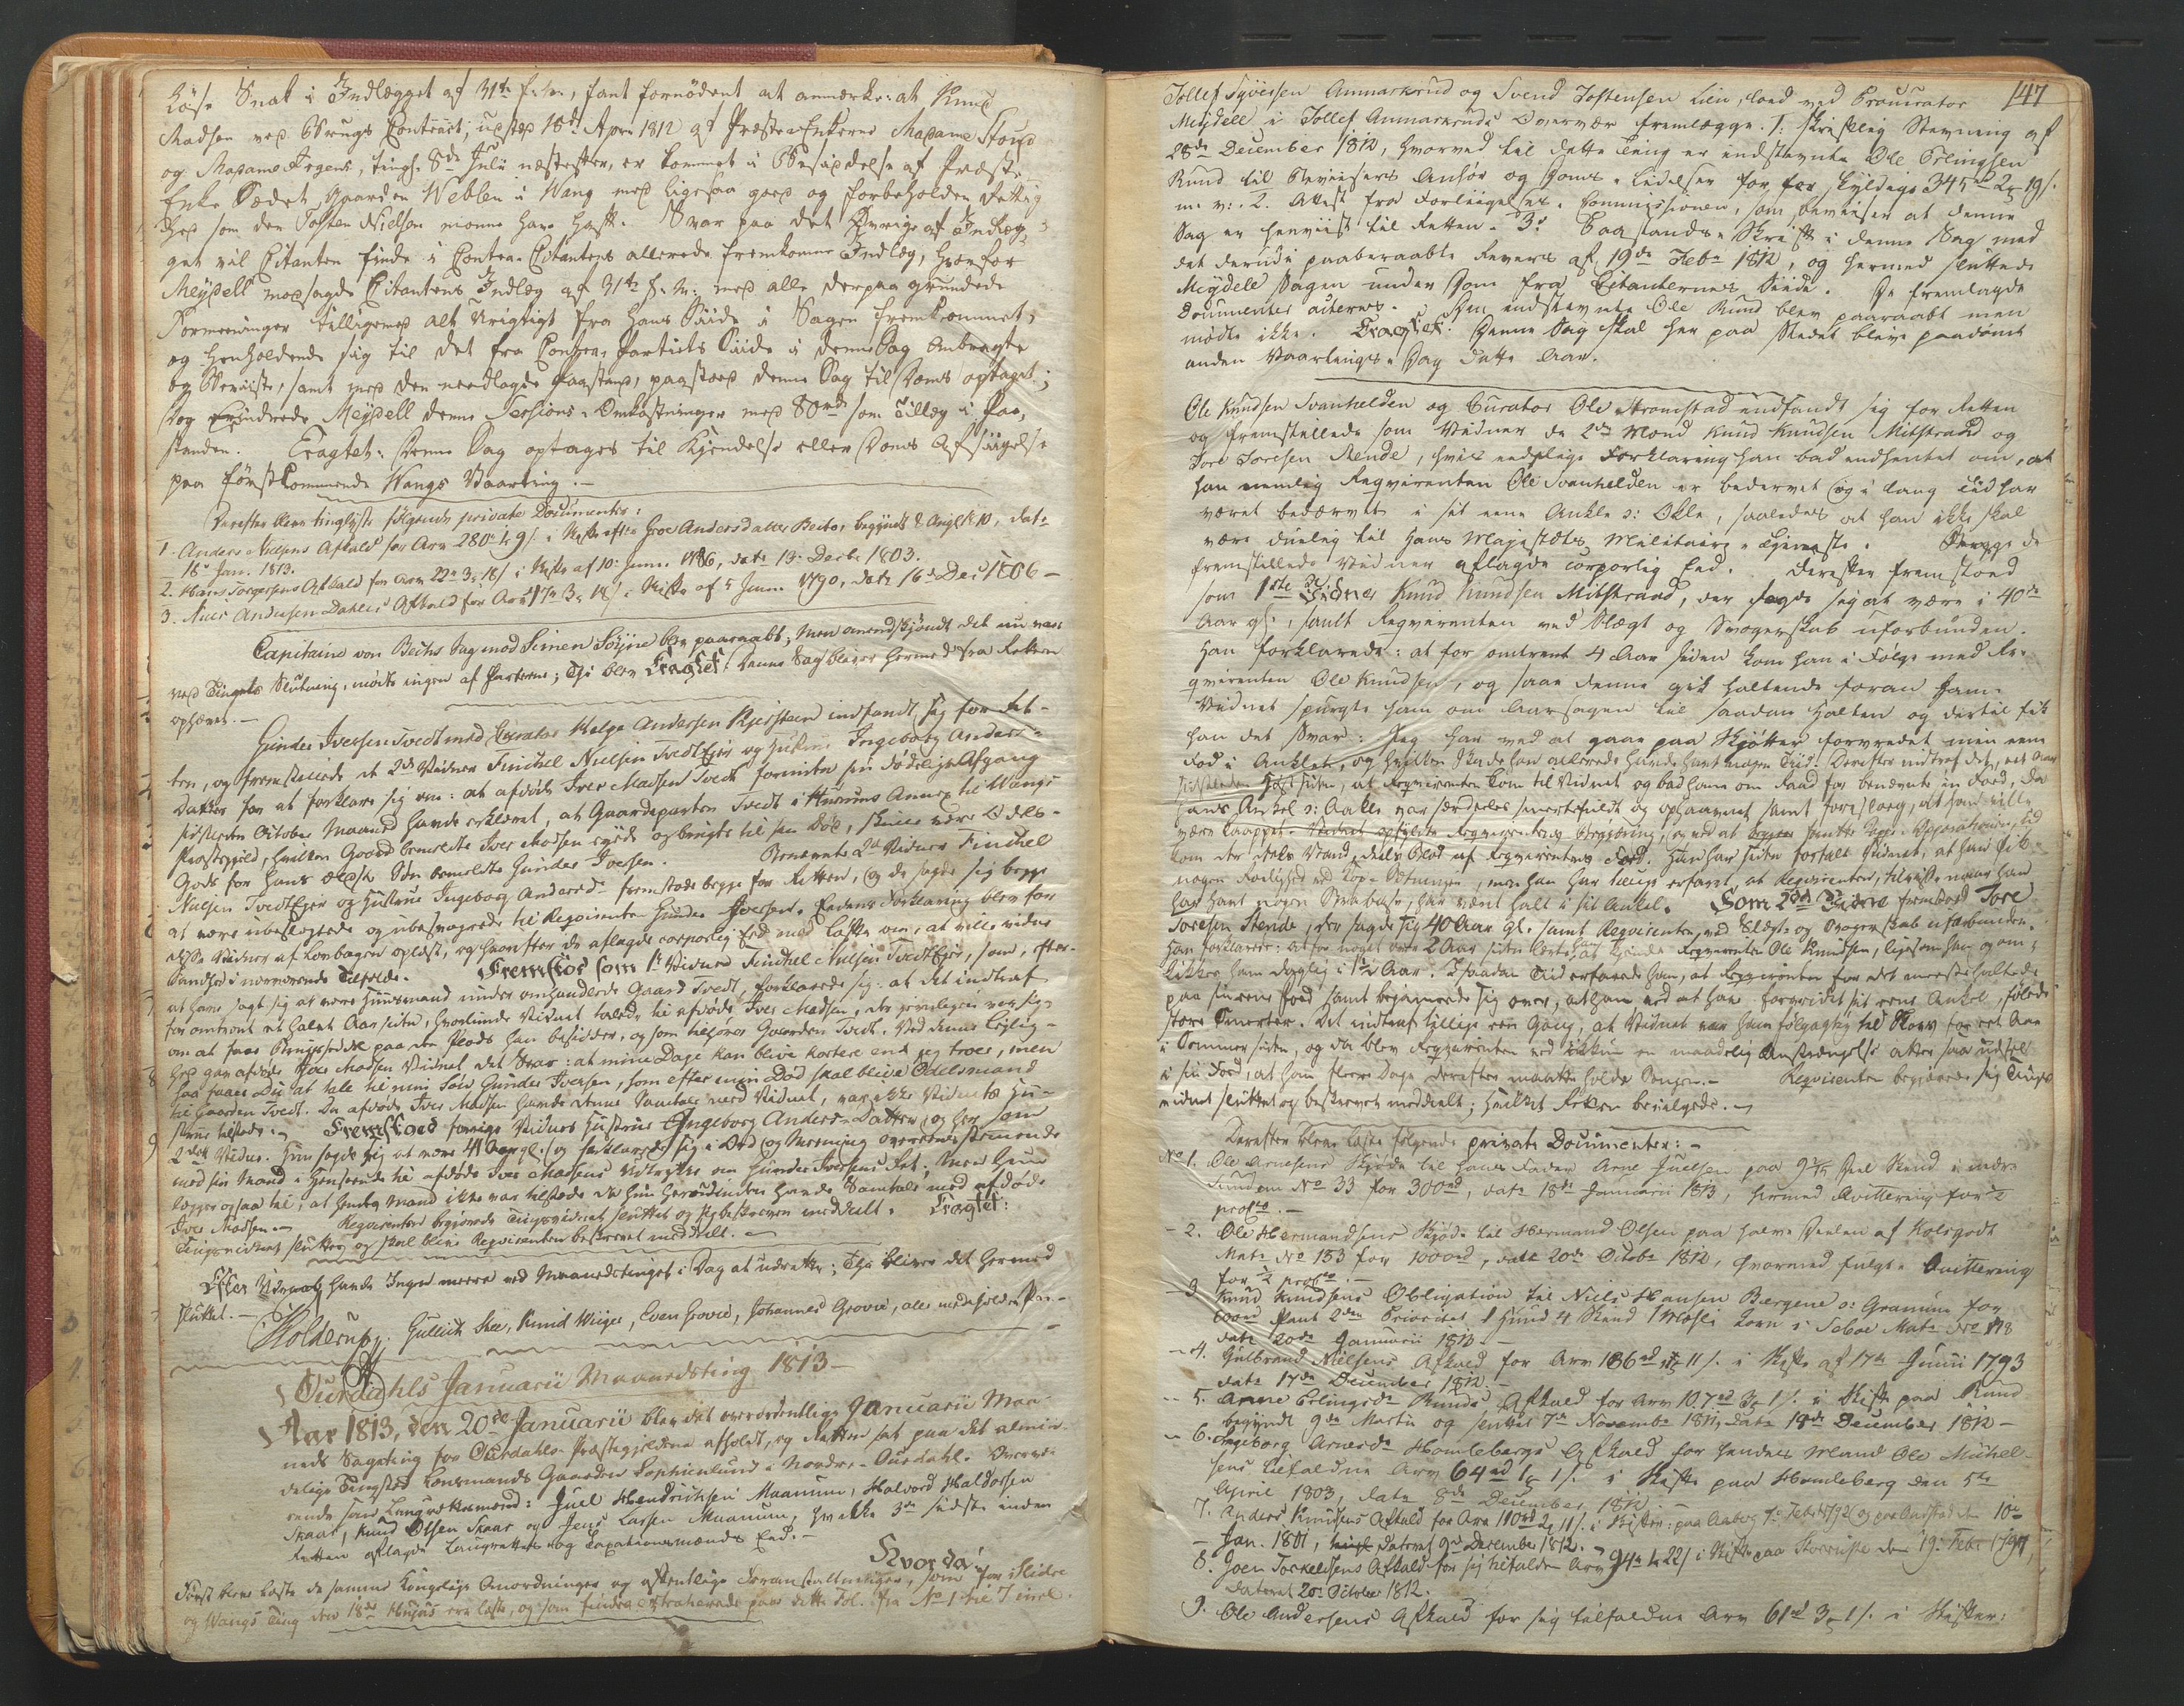 Løse Snak i Indlægget af 31te f. M., fant fornødent at anmærke: at Knud
Madsen ved Brugs Contract, udsted 18de Apri 1812 af Præste-Enkerne Madame Stoud
og Madame Irgens, tingl. 8de Julii næstefter, er kommet i Besiddelse af Præste-
Enke Sædet Gaarden Weblen i Wang med ligesaa god og forbeholden Rettig-
hed som den Tosten Nielsen monne have havt. Svar paa det Øvrige af Indlæg-
get vil Citanten finde i Contra-Citantens allerede fremkomne Indlæg, hvorfor
Meydell modsagde Citantens Indlæg af 31te f. M. med alle derpaa grundede
Formeeninger tilligemed alt Urigtigt fra hans Side i Sagen fremkommet;
og henholdende sig til det fra Contra-Partiets Side i denne Sag Anbragte
og Beviiste, samt med den nedlagde Paastand, paastod denne Sag til Doms optaget;
dog erindrede Meydell denne Sessions Omkostninger med 80rd som Tillæg i Paa-
standen. Eragtet: Denne Sag optages til Kjendelse eller Doms Afsigelse
paa førstkommende Wangs Vaarting.
Derefter blev tinglyst følgende private Documenter:
1. Anders Nielsens Afkald for Arv 280rd 9s i Skifte efter Groe Andersdatter Beito, begyndt d. Aug. 1810, dat.
18de Jan. 1813.
2. Hans Torgersens Afkald for Arv 22rd 3. 18s i Skifte af 10. Junii 1786, dat. 13. Decb. 1803.
3. Niels Andersen Dahlens Afkald for Arv 17rd 3. 18s i Skifte af 5 Junii 1790, dat. 16de Dec 1806
Capitaine von Beichs Sag mod Simen Søyne blev paaraabt; Men omendskjøndt det nu var
ved Tingets Slutning, mødte ingen af Parterne; Thi blev Eragtet: Denne Sag bliver hermed fra Retten
ophævet.
Gunder Iversen Tvedt med Curator Helge Andersen Kjersteen indfandt sig for Ret-
ten, og fremstillede de 2de Vidner Finchel Nielsen TvedtEjer og Hustrue Ingeborg Anders-
datter for at forklare sig om: at afdøde Iver Madsen Tvedt forinden sin dødelige Afgang
sidstleden October Maaned havde erklæret, at Gaardeparten Tvedt i Hurums Annex til Wangs
Præstegjeld, hvilken Gaard bemeldte Iver Madsen eyede og brugte til sin Død, skulde være Odels-
Gods for hans ældste Søn bemeldte Gunder Iversen. Benævnte 2de Vidner Finchel
Nielsen TvedtEjer og Hustrue Ingeborg Andersd. fremstode begge for Retten, og de sagde sig begge
at være ubeslægtede og ubesvogrede til Reqvirenten Gunder Iversen. Eedens Forklaring blev for
disse Vidner af Lovbogen oplæst, og hvorefter de aflagde corporlig Eed med Løfte om, at ville vidne
Sandhed i nærværende Tilfælde. Fremstod som 1ste Vidne Finchel Nielsen TvedtEjer, som, efter-
at have sagt sig at være Huusmand under omhandlede Gaard Tvedt, forklarede sig: at det indtraf
for omtrent et halvt Aar siden, hvorlunde Vidnet talede til afdøde Iver Madsen, der ... var syg,
om at faae Brugsseddel paa den Plads han besidder, og som tilhører Gaarden Tvedt. Ved denne Leilig-
hed gav afdøde Iver Madsen Vidnet det Svar: at mine Dage kan blive kortere end jeg troer, men
saa faaer Du at tale til min Søn Gunder Iversen, som efter min Død skal blive Odelsmand
til Gaarden Tvedt. Da afdøde Iver Madsen havde denne Samtale med Vidnet, var ikke Vidnets Hu-
strue tilstede. Fremstoed forrige Vidnes Hustrue Ingeborg Anders-Datter, og her som
2det Vidne. Hun sagde sig at være 41 Aar gl. og forklarede sig i Ord og Meening overeensstemmende
med sin Mand i Henseende til afdøde Iver Madsens Udtrykke om Gunder Iversens Ret; Men Hun
lægger ogsaa til, at hendes Mand ikke var tilstede da hun herudinden havde Samtale med afdøde
Iver Madsen. Reqvirenten begjærede Tingsvidnet sluttet og sig beskreven meddeelt. Eragtet:
Tingsvidnet sluttes og skal blive Reqvirenten beskrevet meddeelt.
Efter Udraab havde Ingen meere ved Maanedstinget i Dag at udrette; Thi bliver det hermed
sluttet.
Kolderup. Gullich Skee, Knud Winger, Even Grovie, Johannes Grovie, alle medeholdne Pen
Ourdahls Januarii Maanedsting 1813
Aar 1813, den 20de Januarii blev det overordentlige Januarii Maa-
neds Sageting for Ourdahls Præstegjeldene afholdt, og Retten sat paa det almin-
delige Tingsted Lensmands Gaarden Sophienlund i Nordre-Ourdahl. Overvæ-
rende som Laugrettesmænd: Juel Hendrichsen Maanum, Halvord Haldorsen
Skaar, Knud Olsen Skaar og Jens Larsen Muanum, hvilke 3de sidste inden
Retten aflagde Laugrettes- og Taxationsmænds Eed. Hvorda
Først blev læste de samme Kongelige Anordninger og offentlige Foranstaltninger, som for Slidre
og Wangs Ting den 18de Hujus ere læste, og som findes extraherede paa dette Fol. fra No 1 til 7 incl.
147
Tollef Syversen Anmarkrud og Svend Tostensen Lien, lod ved Procurator
Meydell i Tollef Anmarkruds Overvær fremlægge. 1: Skriftlig Stevning af
28de December 1812, hvorved til dette Ting er indstevnte Ole Erlingsen
Rund til Beviisers Anhør og Doms Lidelse for skyldige 345rd 2. 19s.
m. v.: 2. Attest fra Forliigelses Commissionen, som beviiser at denne
Sag er henviist til Retten. 3: Paastands Skrift i denne Sag med
det derudi paaberaabte Revers af 19de Febr 1812, og hermed sluttede
Meydell Sagen under Dom fra Citanternes Siide. De fremlagde
Documenter acteres. Den indstevnte Ole Rund blev paaraabt men
mødte ikke. Eragtet: Denne Sag skal her paa Stedet blive paadømt
anden Vaartings Dag dette Aar.
Ole Knudsen Svanhelden og Curator Ole Strømstad indfandt sig for Retten
og fremstillede som Vidner de 2de Mænd Knud Knudsen Mitstrand og
Tore Toresen Stende, hvis eedelige Forklaring han bad indhentet om, at
han nemlig Reqvirenten Ole Svanhelden er bedærvet og i lang Tid har
været bedærvet i sit eene Ankle o: Okle, saaledes at han ikke skal
være duelig til Hans Majestæts Militaire Tjeneste. Begge de
fremstillede Vidner aflagde corporlig Eed. Derefter fremstoed
som 1ste Vidne Knud Knudsen Mitstrand, der sagde sig at være i 40de
Aar gl., samt Reqvirenten ved Slægt og Svogerskab uforbunden.
Han forklarede: at for omtrent 4 Aar siden kom han i Følge med Re-
qvirenten Ole Knudsen, og saae denne gik haltende foran ham.
Vidnet spurgte ham om Aarsagen til saadan Halten og dertil fik
han det Svar: Jeg har ved at gaae paa Skjøtter forvredet min eene
Fod i Anklet, og hvilken Skade han allerede havde havt nogen Tid. Derefter indtraf det,
... siden, at Reqvirenten kom til Vidnet og bad ham om Raad for benævnte sin Foed, da
hans Ankel o: Aakle var særdeles smertefuldt og ophavnet samt foreslog, at han ville
være kaappet. Vidnet opfyldte Reqvirentens Begjæring, ... ved at ...
kom der deels Vand, deels Blod af Reqvirentens Foed. Han har siden fortalt Vidnet, at han fik
nogen Roelighed ved Kop-Sætningen, men han har tillige erfaret, at Reqvirenten, ... naar han
har havt nogen Strabatse, har været halt i sit Ankel. Som 2det Vidne fremstod Tore
Toresen Stende, der sagde sig 40 Aar gl. samt Reqvirenten ved Slægt- og Svogerskab uforbunden.
Han forklarede: at for noget over 2 Aar siden lærte han at kjende Reqvirenten Ole Knudsen, ligesom han og om-
... ham daglig i 1½ Aar. I saadan Tid erfarede han, at Reqvirenten for det meeste haltede
paa sin eene Foed samt bejamrede sig over, at han ved at have forvredet sit eene Ankel, følede
store Smerter. Det indtraf tillige een Gang, at Vidnet var ham følgagtig til Skovs for eet Aar
i Sommer siden, og da blev Reqvirenten ved ikkun en maadelig Anstrængelse atter saa udsat
i sin Foed, at han flere Dage derefter maatte holde Sengen. Reqvirenten begjærede sig Tings-
vidnet sluttet og beskrevet meddeelt; hvilket Retten bevilgede.
Derefter blev læste følgende private Documenter:
No 1. Ole Arnesens Skjøde til hans Fader Arne Juelsen paa 9½ Skind i nedre
Fundem No 33 for 300rd, dat. 18de Januarii 1813, hermed Qvittering for ½
procto.
2. Ole Hermandsens Skjøde til Hermand Olsen paa halve Deelen af Kolsgodt
Mat. No 153 for 1000rd, dat. 20de Octobr 1812, hvormed fulgte Qvittering
for ½ procto.
3. Knud Knudsens Obligation til Niels Hansen Bergene o: Gramme for
600rd Pant 2den Prioritet 1 Hund 4 Skind 1 Mæle Korn i Seboe Mat. No 118
dat. 20de Januarii 1813
4. Gulbrand Nielsens Afkald for Arv 186rd 11s. i Skifte af 17de Junii 1793
dat. 17de December 1812.
5. Anne Erlingsd. Runds Afkald for Arv 107rd 3. 1s. i Skifte paa Rund
begyndt 9de Martii og sluttet 7de Novembr 1811, dat. 18de December 1812
6. Ingeborg Arnesd. Homlebergs Afkald for hendes Mand Ole Michel-
sens tilfaldne Arv 64rd 1. 1s. i Skifte paa Homleberg den 5te
April 1803, dat. 8de December 1812.
7. Anders Knudsens Afkald for Arv 110rd 2. 11s. i Skifter: paa Aaberg 7de Febr 1792 og paa Aadstad den 10de
Jan. 1801, dateret 9de December 1812.
8. Joen Torkeldsens Afkald for sig tilfalden Arv 94rd 22s i Skifte paa Storrusse den 19. Febr 1794,
dateret 20de October 1812.
9. Ole Andersens Afkald for sig tilfaldne Arv 61rd 3. 1s. i Skifter: